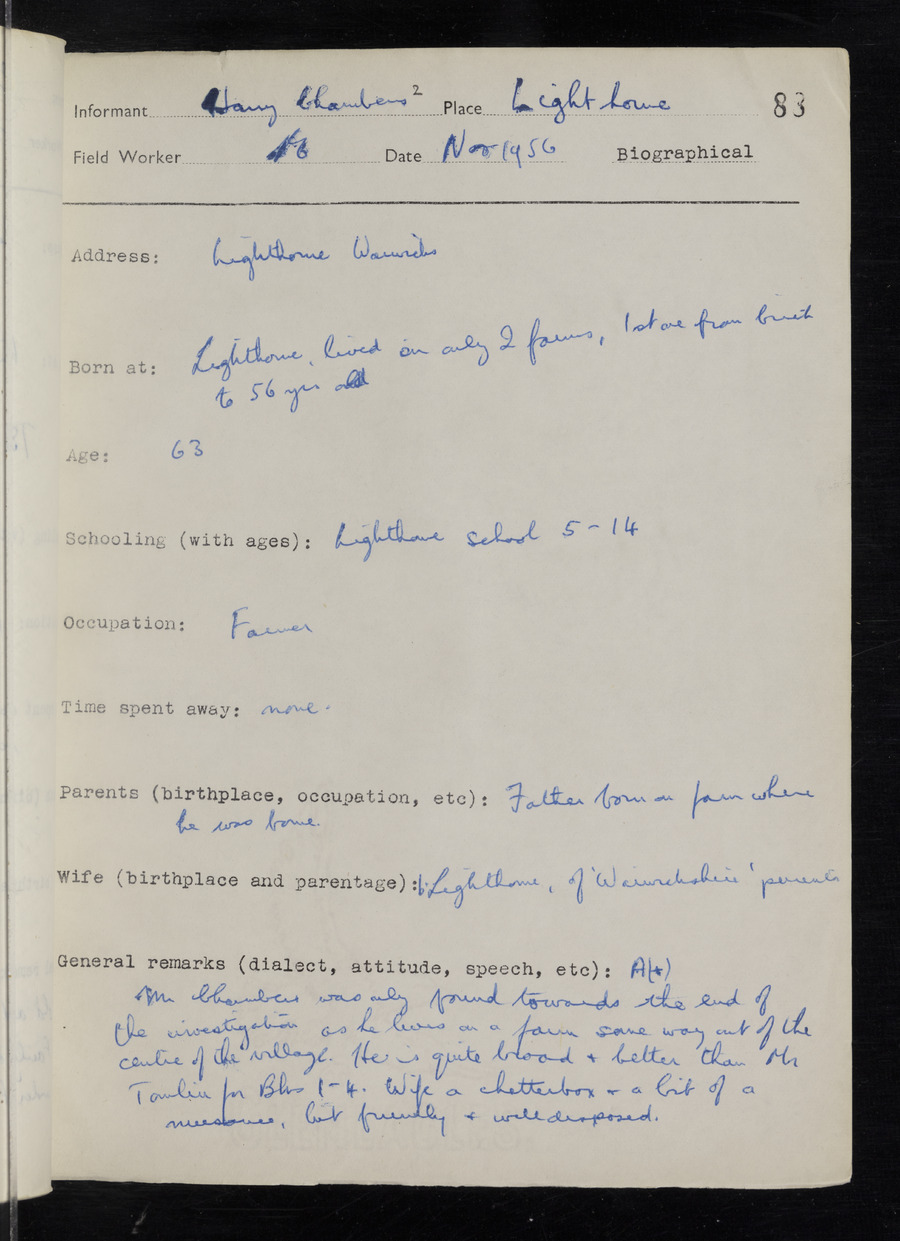 Informant Harry Chambers 2 Place Lighthorne 83
Field Worker Date Nov 1956 Biographical
Address: Lighthorne Warwicks
Born at: Lighthorne, lived on only 2 farms, 1st one from birth
to 56 yrs old
Age: 63
Schooling (with ages): Lighthorne school 5-14
Occupation: Farmer
Time spent away: none.
Parents (birthplace, occupation, etc): Father born on farm where
he was borne.
Wife (birthplace and parentage): Lighthorne, of 'Warwickshire' parents
General remarks (dialect, attitude, speech, etc): A(+)
Mr Chambers was only found towards the end of
the investigation as he lives on a farm some way out of the
centre of the village. He is quite broad + better than Mr
Tomlin for Bks 1-4. Wife a chatterbox + a bit of a
nuisance, but friendly + well disposed.